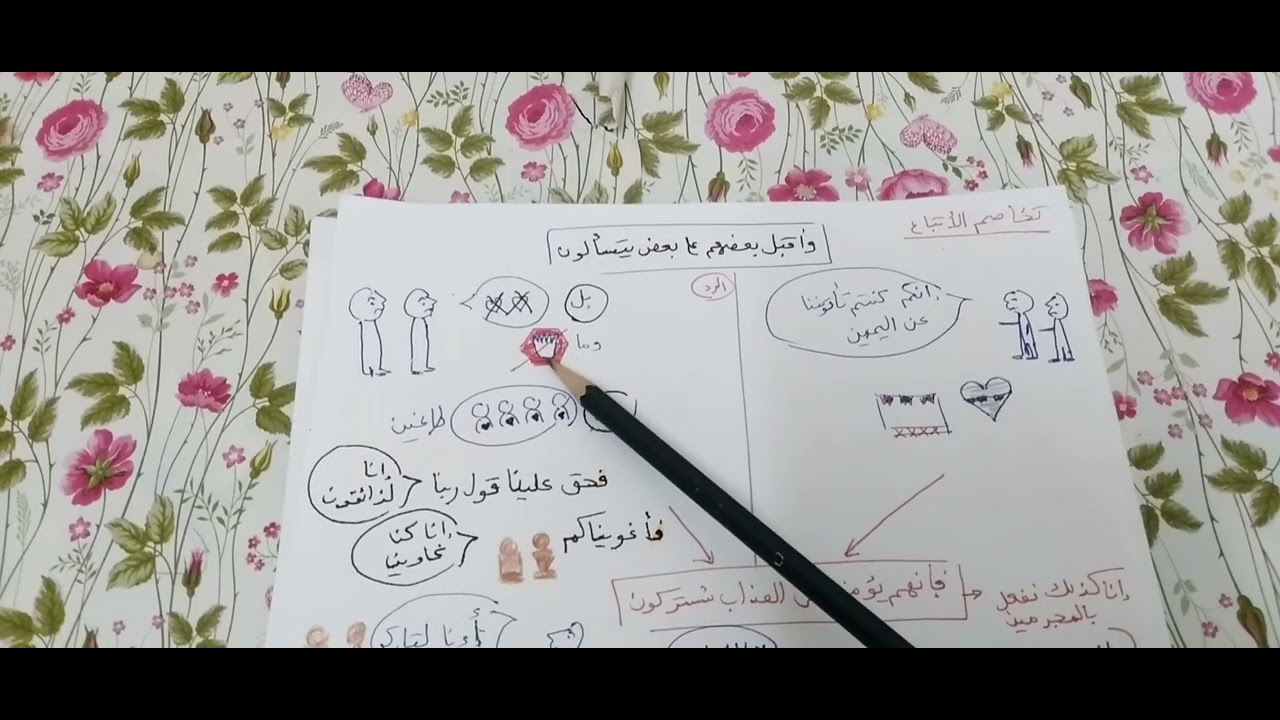 تخاصم الأتباع
وأقبل بعضهم على بعض يتسألون
إنكم كنتم تأتوننا
عن اليمين
الرد
بل
وما
طاغين
فحق علينا قول ربنا
إنا
لذائقون
فأغويناكم
إنا كنا
غاوين
فإنهم يؤمئذ العذاب مشتركون
إنا كذلك نفعل
بالمجرمين